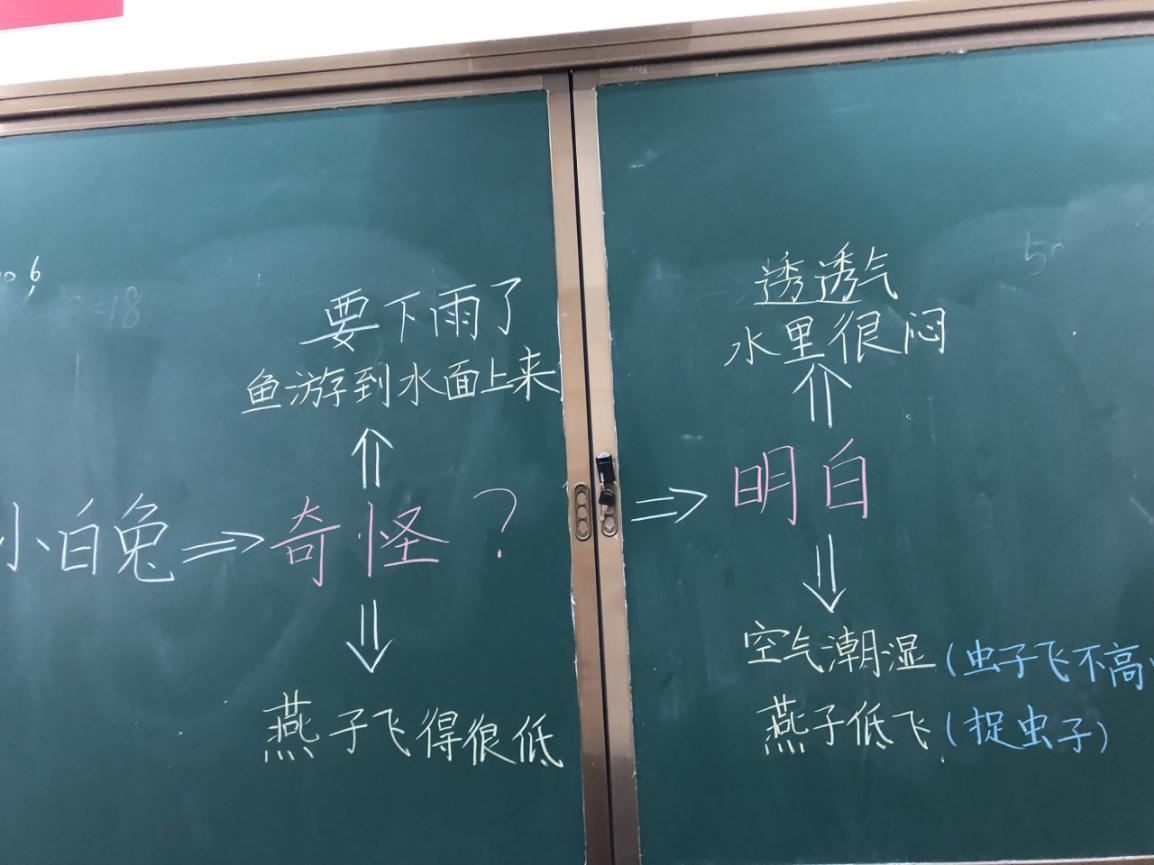 要下雨了
鱼游到水面上来
小白兔⇒奇怪？
燕子飞得很低
透透气
水里很闷
⇒明白
空气潮湿(虫子飞不高
燕子低飞(捉虫子)